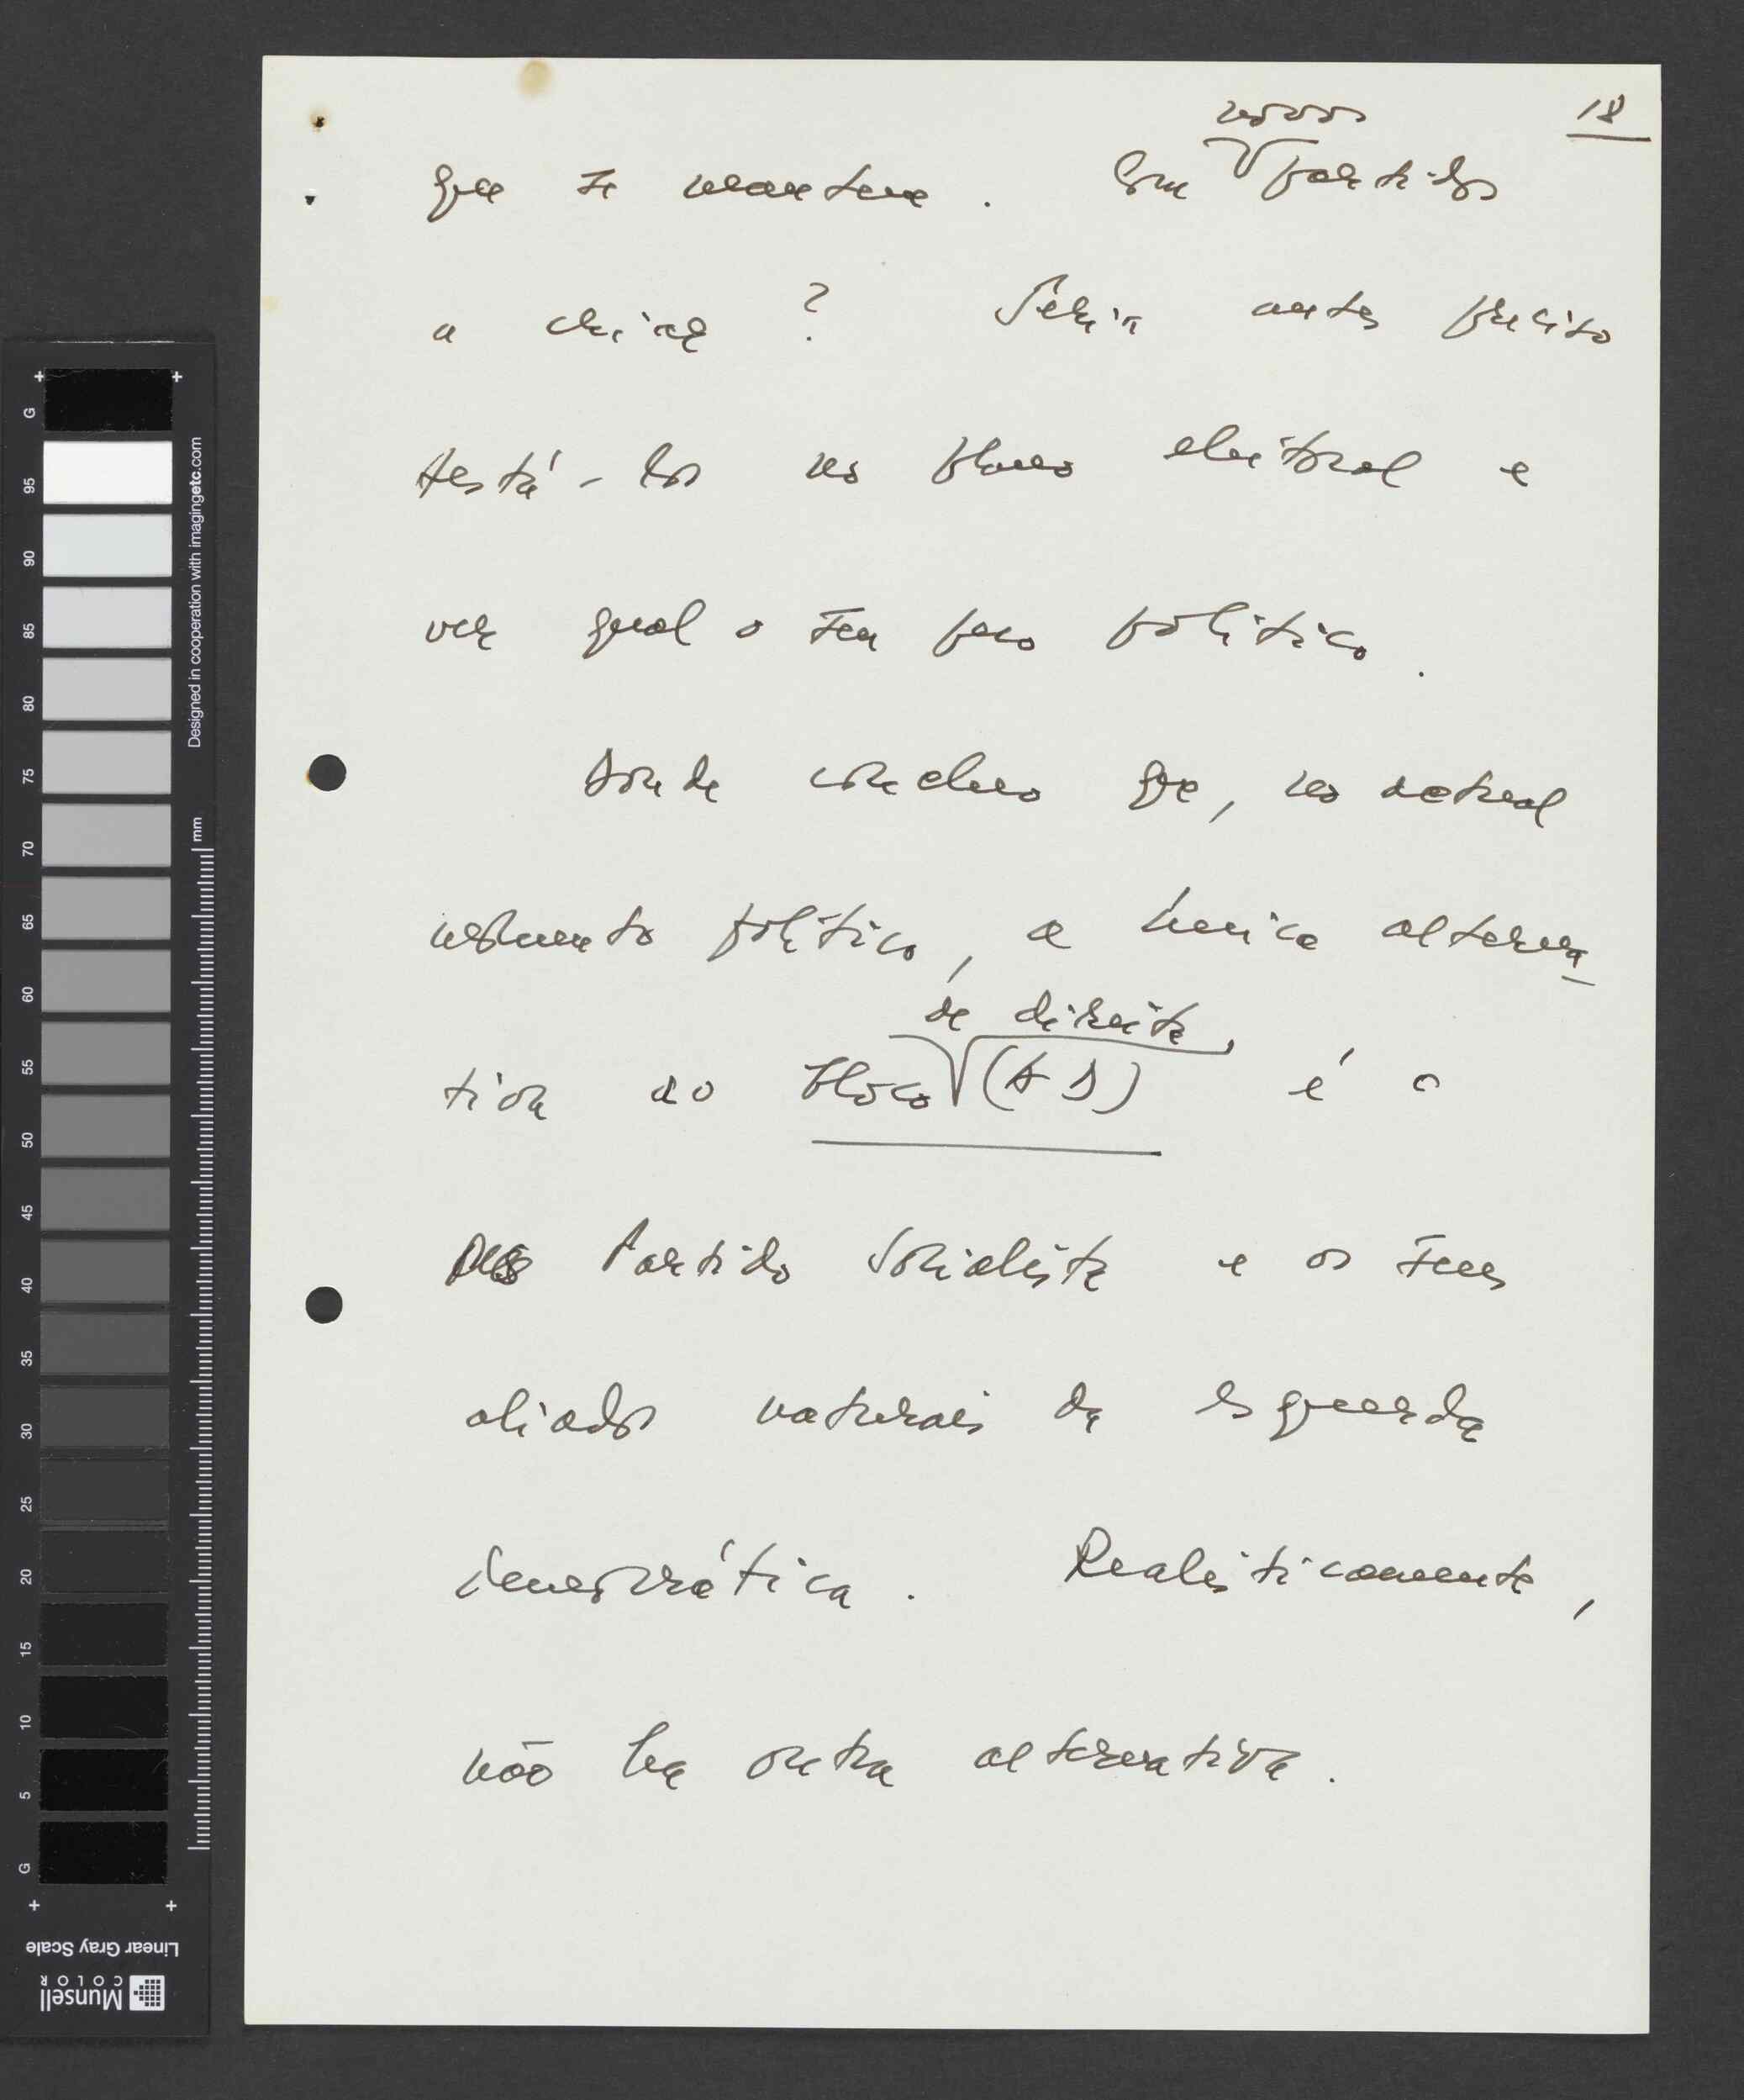 18
que se mantem. Com novos partidos
a criar? Seria antes preciso
testá-los no plano eleitoral e
ver qual o seu peso político.
Donde concluo que, no actual
momento político, a única alterna
tiva ao bloco de direita, (AD) é o
Partido Socialista e os seus
aliados naturais da esquerda
democrática. Realisticamente,
não ha outra alternativa.
G
95
90
85
80
75
70
65
60
55
50
45
40
35
30
25
20
15
10
5
G
mm
Designed in cooperation with imagingetc.com
Linear Gray Scale
Munsell
COLOR